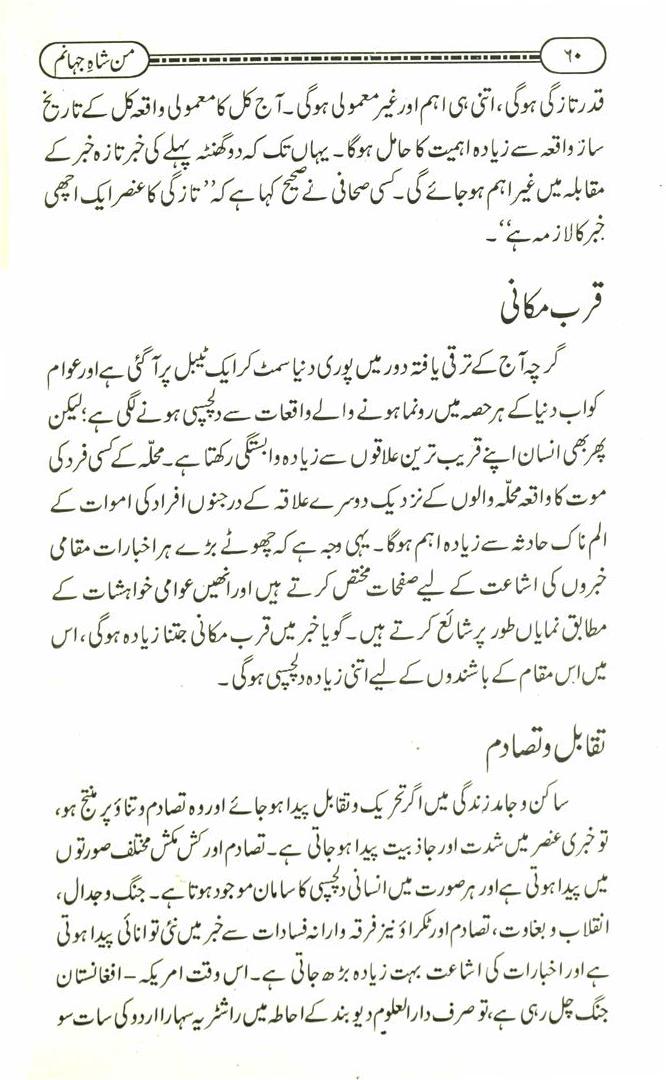 من شاہِ جہانم
۶۰
قدر تازگی ہوگی، اتنی ہی اہم اور غیر معمولی ہوگی۔ آج کل کا معمولی واقعہ کل کے تاریخ
ساز واقعہ سے زیادہ اہمیت کا حامل ہوگا۔ یہاں تک کہ دو گھنٹہ پہلے کی خبر تازہ خبر کے
مقابلہ میں غیر اہم ہو جائے گی۔ کسی صحافی نے صحیح کہا ہے کہ ’’تازگی کا عنصر ایک اچھی
خبر کا لازمہ ہے‘‘۔
قرب مکانی
گرچہ آج کے ترقی یافتہ دور میں پوری دنیا سمٹ کر ایک ٹیبل پر آ گئی ہے اور عوام
کو اب دنیا کے ہر حصہ میں رونما ہونے والے واقعات سے دلچسپی ہونے لگی ہے؛ لیکن
پھر بھی انسان اپنے قریب ترین علاقوں سے زیادہ وابستگی رکھتا ہے۔ محلّہ کے کسی فرد کی
موت کا واقعہ محلّہ والوں کے نزدیک دوسرے علاقہ کے درجنوں افراد کی اموات کے
الم ناک حادثہ سے زیادہ اہم ہوگا۔ یہی وجہ ہے کہ چھوٹے بڑے ہر اخبارات مقامی
خبروں کی اشاعت کے لیے صفحات مختص کرتے ہیں اور انھیں عوامی خواہشات کے
مطابق نمایاں طور پر شائع کرتے ہیں۔ گویا خبر میں قرب مکانی جتنا زیادہ ہوگی، اس
میں اس مقام کے باشندوں کے لیے اتنی زیادہ دلچسپی ہوگی۔
تقابل و تصادم
ساکن و جامد زندگی میں اگر تحریک و تقابل پیدا ہو جائے اور وہ تصادم و تناؤ پر منتج ہو،
تو خبری عنصر میں شدت اور جاذبیت پیدا ہو جاتی ہے۔ تصادم اور کش مکش مختلف صورتوں
میں پیدا ہوتی ہے اور ہر صورت میں انسانی دلچسپی کا سامان موجود ہوتا ہے۔ جنگ و جدال،
انقلاب و بغاوت، تصادم اور ٹکراؤ نیز فرقہ وارانہ فسادات سے خبر میں نئی توانائی پیدا ہوتی
ہے اور اخبارات کی اشاعت بہت زیادہ بڑھ جاتی ہے۔ اس وقت امریکہ - افغانستان
جنگ چل رہی ہے، تو صرف دارالعلوم دیوبند کے احاطہ میں راشٹریہ سہارا اردو کی سات سو